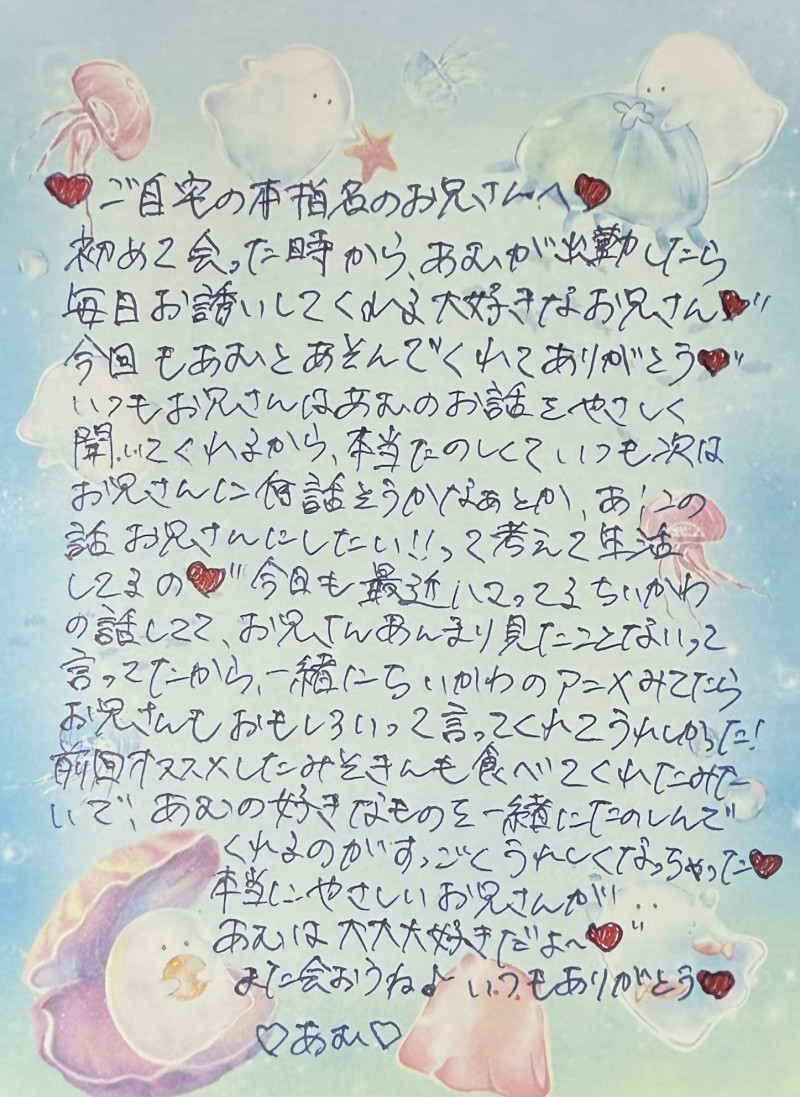 ♥ご自宅の本指名のお兄さんへ♥
初めて会った時から、あむが出勤したら
毎日お誘いしてくれる大好きなお兄さん♥
今回もあむとあそんでくれてありがとう♥
いつもお兄さんはあむのお話をやさしく
聞いてくれるから、本当たのしくていつも次は
お兄さんに何話そうかなぁとか、あ!この
話お兄さんにしたい!!って考えて生活
してるの♥今日も最近ハマってるちいかわ
の話してて、お兄さんあんまり見たことないって
言ってたから、一緒にちいかわのアニメみてたら
お兄さんもおもしろいって言ってくれてうれしかった!
前回オススメしたみそきんも食べてくれたみた
いで、あむの好きなものを一緒にたのしんで
くれるのがすっごくうれしくなっちゃった♥
本当にやさしいお兄さんが!
あむは大大大好きだよ〜♥
また会おうねよ いつもありがとう♥
♡あむ♡